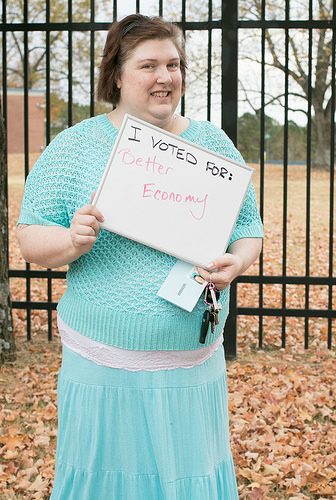 I VOTED FOR:
Better
Economy